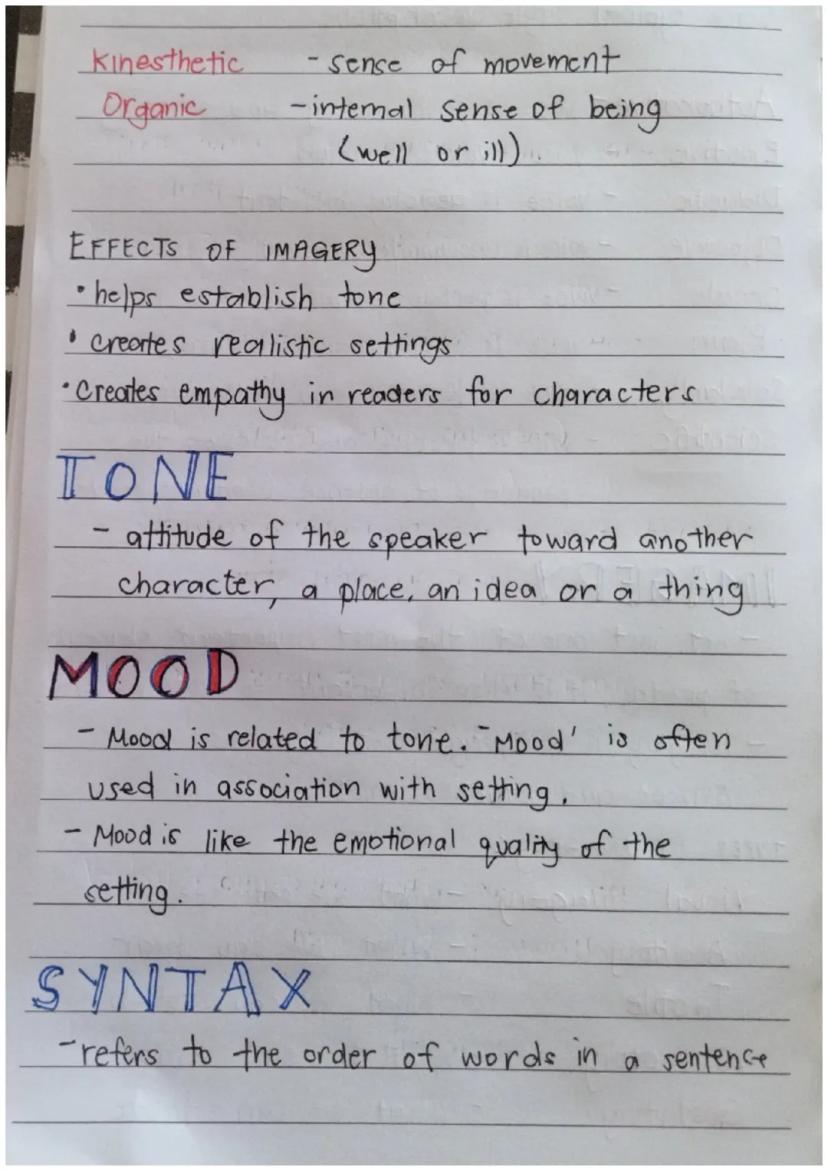 Kinesthetic - sense of movement
Organic - internal sense of being
(well or ill).
EFFECTS OF IMAGERY
• helps establish tone
• creates realistic settings
• Creates empathy in readers for characters
TONE
- attitude of the speaker toward another
character, a place, an idea or a thing
MOOD
- Mood is related to tone. "Mood' is often
used in association with setting.
- Mood is like the emotional quality of the
setting.
SYNTAX
- refers to the order of words in a sentence